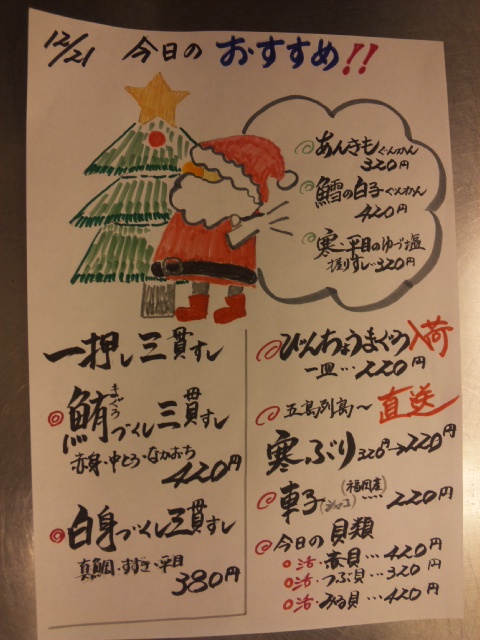 12/21 今日の おすすめ!!
あんきもぐんかん
320円
鱈の白子ぐんかん
420円
寒・平目のゆづ塩
握りすし…320円
一押し三貫すし
まぐろ
◎鮪づくし三貫すし
赤身・中とろ・なかおち
420円
◎白身づくし三貫すし
真鯛・すずき・平目
380円
びんちょうまぐろ入荷
一皿…220円
五島列島〜直送
寒ぶり320円→220円
(福岡産)
車子 220円
今日の貝類
○活・赤貝…420円
○活・つぶ貝…320円
○活・みる貝…420円